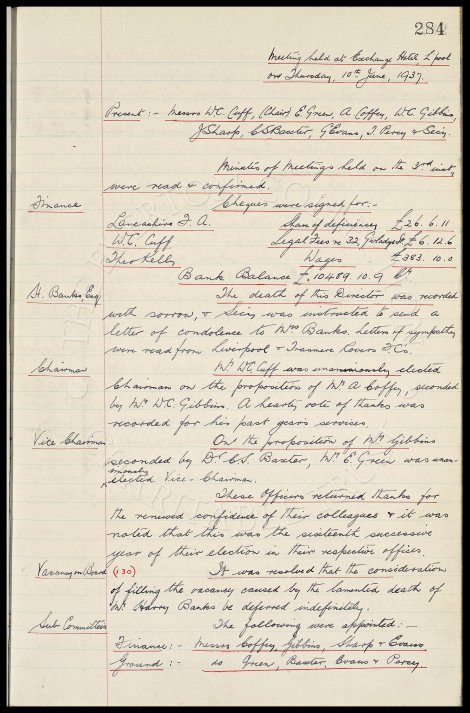 284
Meeting held at Exchange Hotel, L'pool
on Thursday, 10th June, 1937.
Present :- Messrs W.C. Cuff, (Chair) E. Green, A. Coffey, W.C. Gibbins,
J. Sharp, C.S. Baxter, G. Evans, T. Percy & Secy.
Minutes of Meetings held on the 3rd inst,
were read & confirmed.
Finance
Cheques were signed for:-
Lancashire F.A. Share of deficiency £26. 6. 11
W.C. Cuff Legal Fees re 32, Gwladys St £6. 12. 6
Theo Kelly Wages £383. 10. 0
Bank Balance £10489. 10. 9 Cr
H. Banks, Esq The death of this Director was recorded
with sorrow, & Secy was instructed to send a
letter of condolence to Mrs Banks. Letters of sympathy
were read from Liverpool & Tranmere Rovers F.C's.
Chairman Mr W.C. Cuff was unanimously elected
Chairman on the proposition of Mr A Coffey, seconded
by Mr W.C. Gibbins. A hearty vote of thanks was
recorded for his past years services.
Vice Chairman On the proposition of Mr Gibbins
seconded by Dr C.S. Baxter, Mr E. Green was unan-
imously
elected Vice-Chairman.
These Officers returned thanks for
the renewed confidence of their colleagues & it was
noted that this was the sixteenth successive
year of their election in their respective offices.
Vacancy on Board (130) It was resolved that the consideration
of filling the vacancy caused by the lamented death of
Mr Harry Banks be deferred indefinitely.
Sub Committees The following were appointed:-
Finance:- Messrs Coffey, Gibbins, Sharp & Evans
Ground:- do Green, Baxter, Evans & Percy